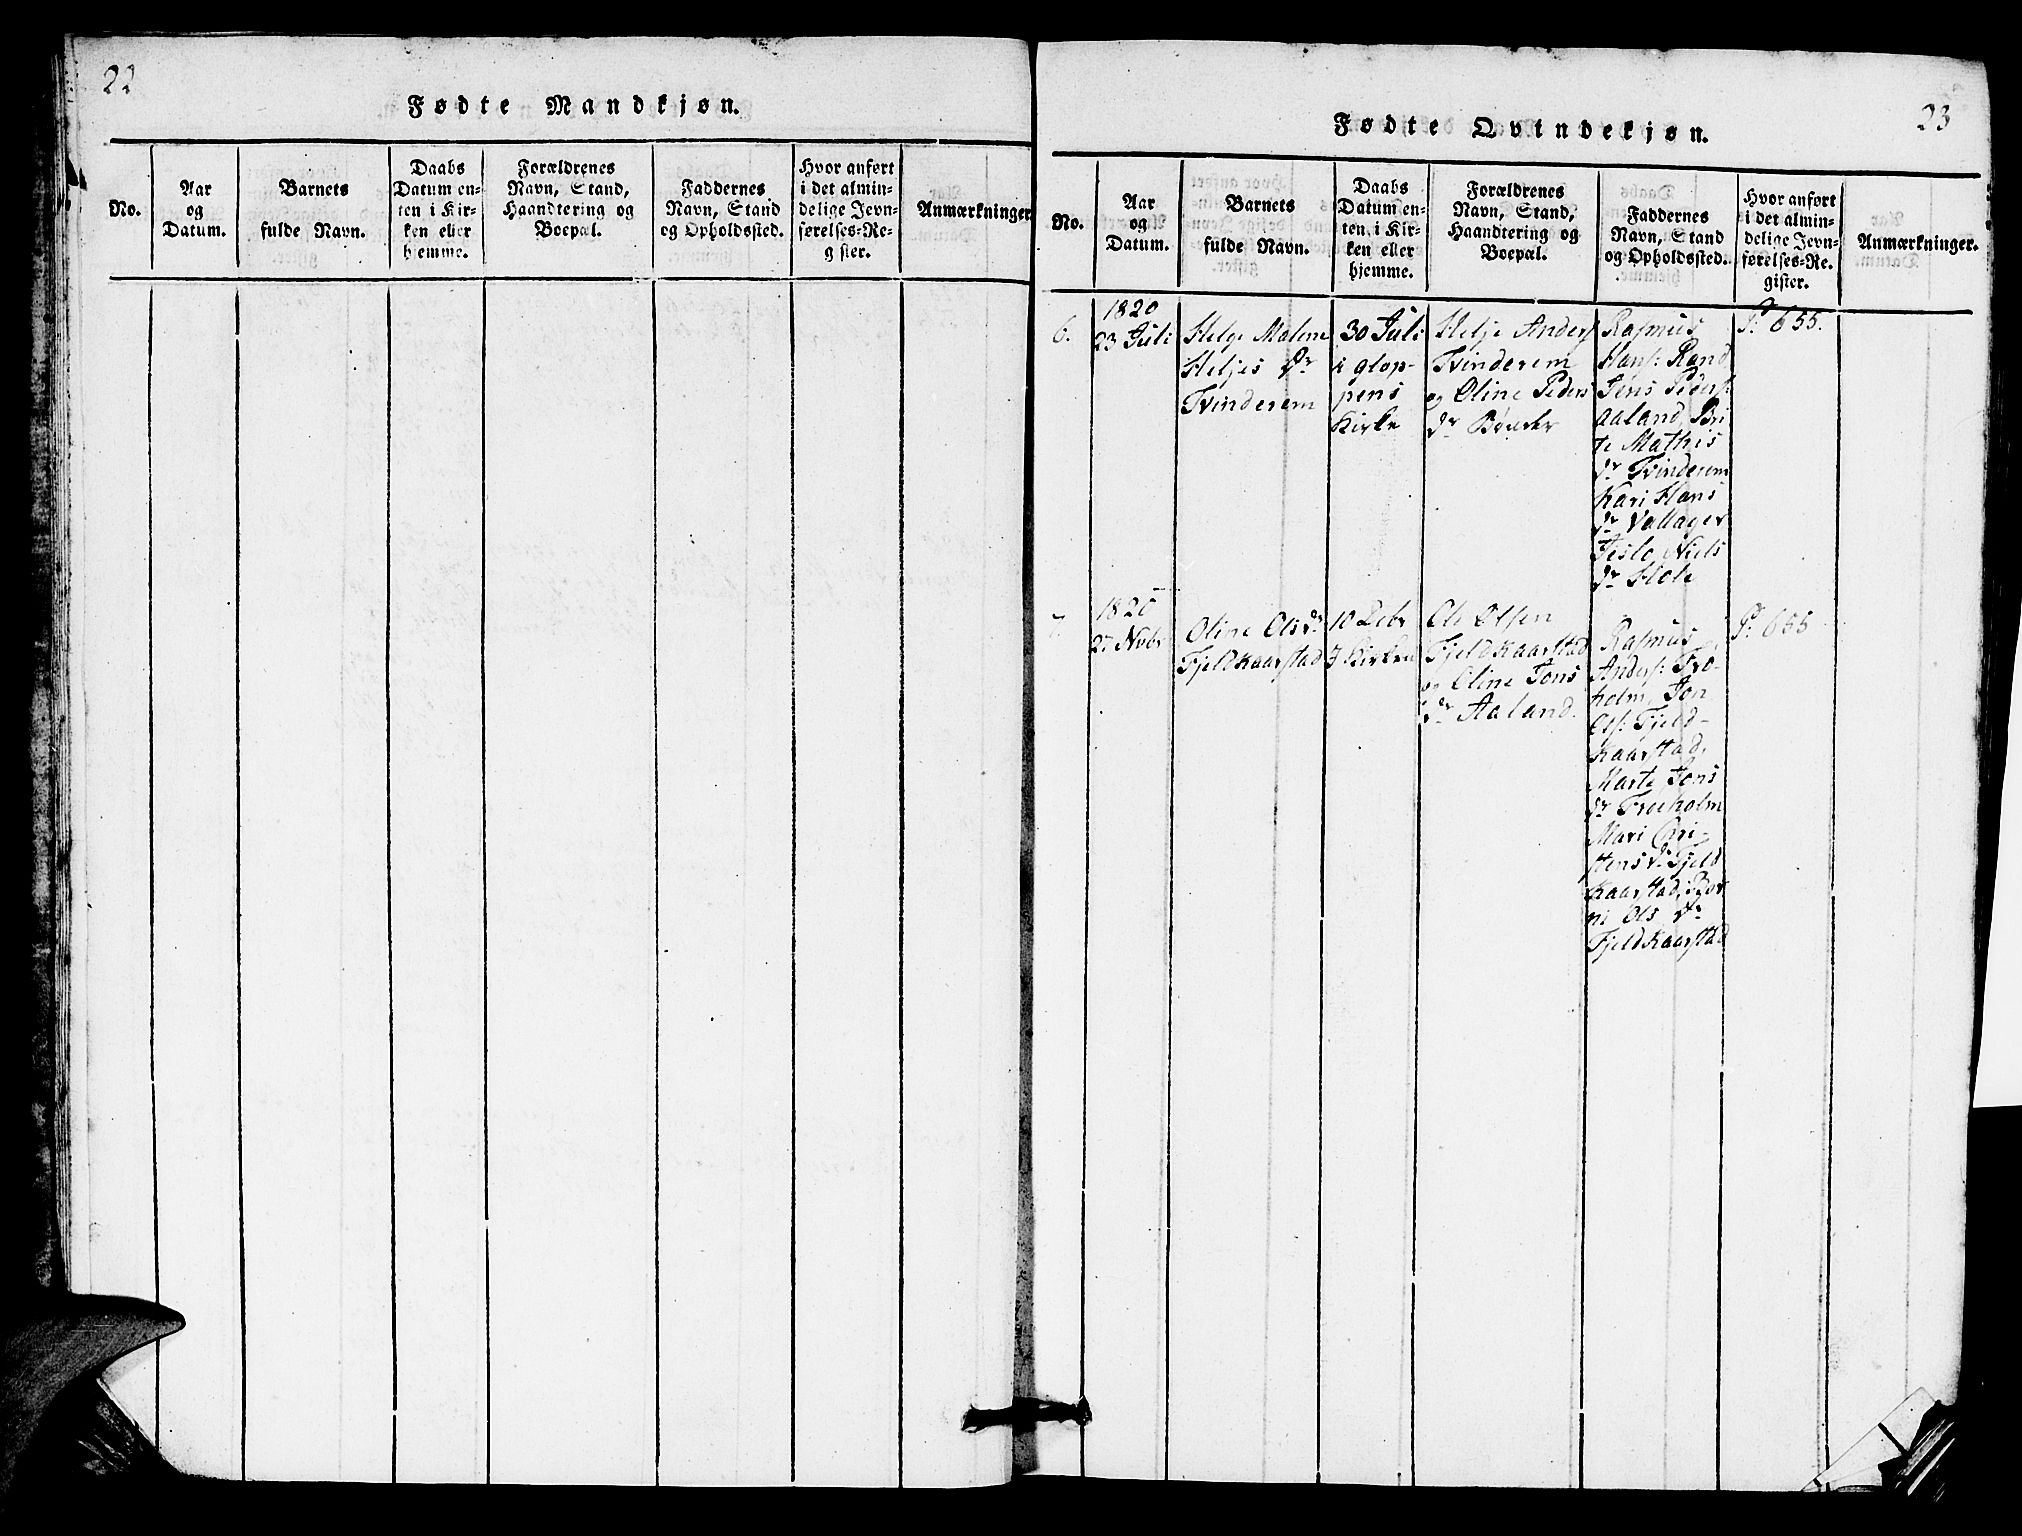 22
Fødte Mandkjøn.
No.
Aar
og
Datum.
Barnets
fulde Navn.
Daabs
Datum en-
ten i Kir-
ken eller
hjemme.
Forældrenes
Navn, Stand,
Haandtering og
Boepæl.
Faddernes
Navn, Stand
og Opholdssted.
Hvor anført
i det almin-
delige Jevn-
førelses-Re-
gister.
Anmærkninger
23
Fødte Qvindekjøn.
No.
Aar
og
Datum.
Barnets
fulde Navn.
Daabs
Datum en-
ten i Kir-
ken eller
hjemme.
Forældrenes
Navn, Stand,
Haandtering og
Boepæl.
Faddernes
Navn, Stand
og Opholdssted.
Hvor anført
i det almin-
delige Jevn-
førelses-Re-
gister.
Anmærkninger.
6.
1820
23 Juli
Helge Malene
Heljes dr
Tvinderem
30 Juli
i glop-
pens
Kirke
Helje Anders
Tvinderem
og Oline Peders
dr Bønder
Rasmus
Hans: Rand
Jens Peders:
Aaland, Bri
te Mathis
dr Tvinderem
Kari Hans
dr Vallager
Niels
dr Hole
P: 655.
7.
1820
27 Nobr
Oline Ols dr
Fjeldkaarstad
10 Debr
I Kirken
Ole Olsen
Fjeldkaarstad
og Oline Jons
dr Aaland.
Rasmus
Anders: Tro-
holm, Jon
Ols: Fjeld-
kaarstad,
Marte Jons
dr Troeholm
Mari Cri-
stens dr Fjeld
kaarstad,
Ols dr
Fjeldkaarstad
P: 655